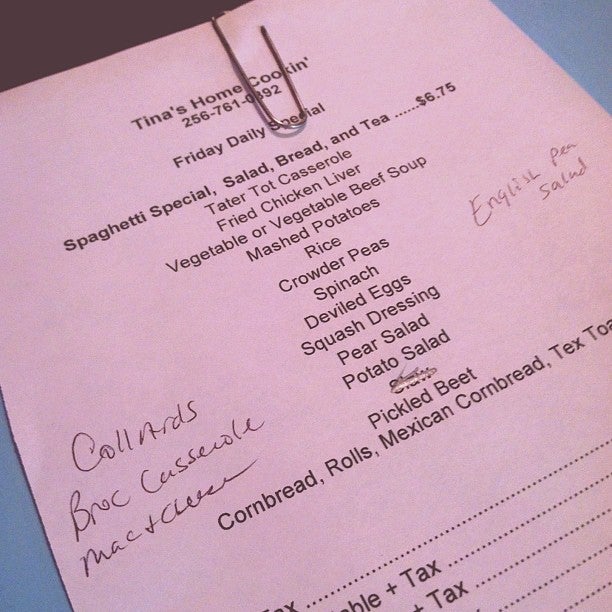 Tina's Home Cookin'
256-761-0892
Friday Daily Special
Spaghetti Special, Salad, Bread, and Tea ......$6.75
Tater Tot Casserole
Fried Chicken Liver
Vegetable or Vegetable Beef Soup
Mashed Potatoes
Rice
Crowder Peas
Spinach
Deviled Eggs
Squash Dressing
Pear Salad
Potato Salad
Pickled Beet
Cornbread, Rolls, Mexican Cornbread, Tex Toa
English Pea
Salad
Collards
Broc Casserole
Mac + Cheese
Tax
able + Tax
+ Tax